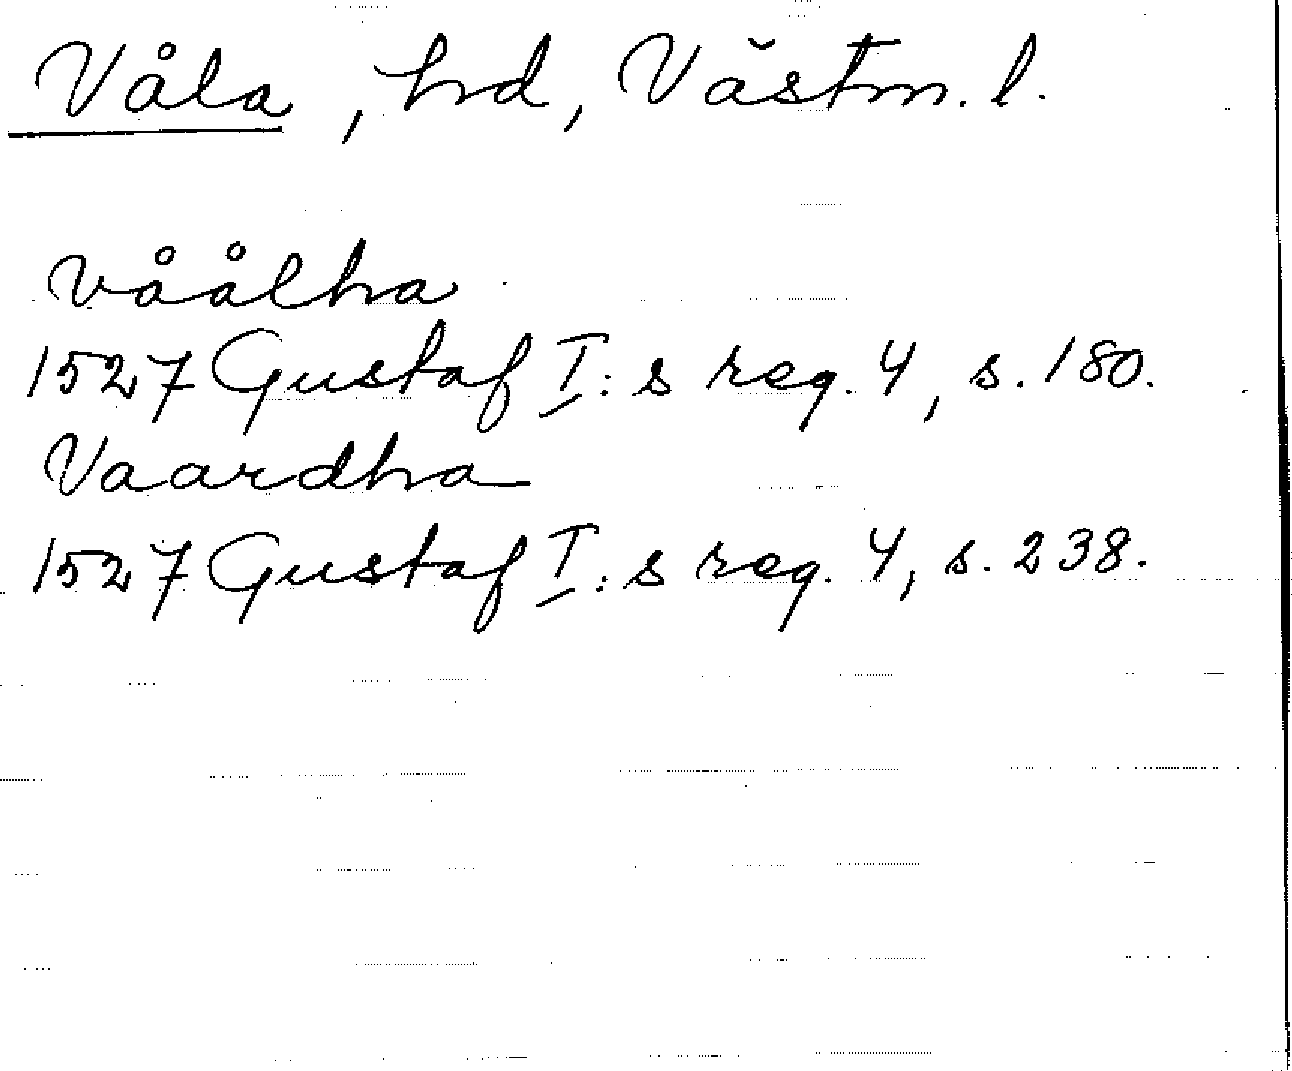 Våla, hd, Västm. l.
Våålha
1527 Gustaf I:s reg. 4, s. 180.
Vaardha
1527 Gustaf I:s reg. 4, s. 238.